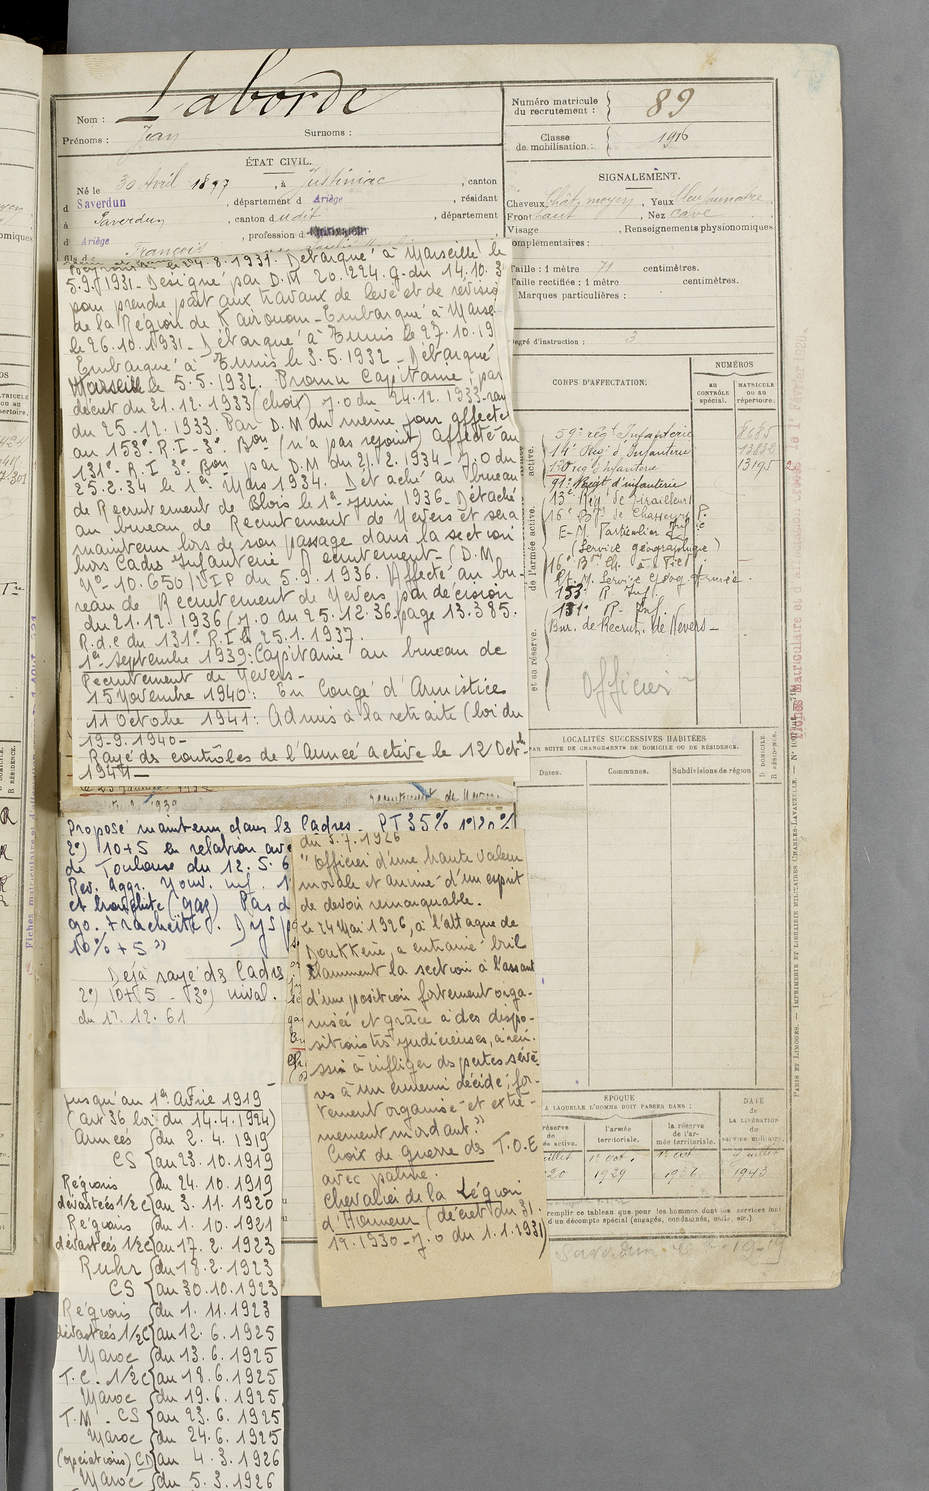 Nom : Laborde
Prénoms : Jean Surnoms :
ÉTAT CIVIL.
Né le 30 Avril 1897, à Justiniac, canton
d Saverdun, département d Ariège, résidant
à Saverdun, canton d udit, département
d' Ariège, profession d
fils de François
Numéro matricule du recrutement : 89
Classe de mobilisation : 1916
SIGNALEMENT.
Cheveux chât. moyen, Yeux bleu
Front haut, Nez cave
Visage , Renseignements physionomiques
complémentaires :
Taille : 1 mètre 71 centimètres.
Taille rectifiée : 1 mètre centimètres.
Marques particulières :
Degré d'instruction : 3
débarqué à Marseille le
5.9.1931 - Désigné par D.M 20.224.g. du 14.10.3
pour prendre part aux travaux de levé et de révisio
de la Région de Kairouan - Embarqué à Marse
le 26.10.1931 - Débarqué à Tunis le 27.10.19
Embarqué à Tunis le 3.5.1932 - Débarqué
Marseille le 5.5.1932. Promu Capitaine, par
décret du 21.12.1933 (choix) J.O du 24.12.1933 - ran
du 25-12.1933. Par D.M du meme jour affecté
au 153e R.I - 3e Bon (n'a pas rejoint) affecté au
131e R.I 3e Bon par D.M du 21.2.1934 - J.O du
25.2.34 le 1er Mars 1934. Détaché au bureau
de Recrutement de Blois le 1er Juin 1936 - Détaché
au bureau de Recrutement de Nevers et sera
maintenu lors de son passage dans la section
hors Cadre Infanterie Recrutement - (D.M
No 10.650/VIP du 5.9.1936. Affecté au bu-
reau de Recrutement de Nevers par décision
du 21.12.1936 (J.O au 25.12.36 page 13.385.
R.d.c du 131e R.I le 25.1.1937.
1er Septembre 1939: Capitaine au bureau de
Recrutement de Nevers -
15 Novembre 1940: En Congé d'Armistice
11 Octobre 1941: Admis à la retraite (loi du
19-9.1940 -
Rayé ds contrôles de l'Armée active le 12 Octbre
1941 -
CORPS D'AFFECTATION.
NUMÉROS
au CONTRÔLE spécial.
MATRICULE ou au répertoire.
59e régt Infanterie 8685
14e Rég. d'Infanterie 13832
120 rég Infanterie 13195
91e Régt d'infanterie
13e Rég. de Tirailleurs
16e Bon de Chasseurs P.
E-M. Particulier Inf.
(Service géographique)
16e Bon Ch. à Pied
Et. M. Service Géog. Armée.
153e R. Inf.
131e R. Inf.
Bur. de Recrut. de Nevers -
Officier
de l'armée active.
et sa réserve.
LOCALITÉS SUCCESSIVES HABITÉES
PAR SUITE DE CHANGEMENTS DE DOMICILE OU DE RÉSIDENCE.
Dates. Communes. Subdivisions de région
D DOMICILE.
R RÉSIDENCE.
Proposé maintenu dans ls Cadres - PT 35% 1°) 20%
2°) 10+5 en relation ave
de Toulouse du 12.5.6
et bronchite (gaz) Pas d
10% + 5 "
Déjà rayé ds Cadres
2°) 10+5 - (3°) nival.
du 17.12.61
du 3.7.1926
"Officier d'une haute valeur
morale et animé d'un esprit
de devoir remarquable.
Le 24 Mai 1926, à l'attaque de
Doukkene, a entrainé bril
lamment la section à l'assaut
d'une position fortement orga-
nisée et grâce à des dispo-
sitions très judicieuses, a réu
ssi à infliger ds pertes sévè
res à un ennemi décidé, for-
tement organisé et extrê-
mement mordant."
Croix de guerre ds T.O.E
avec palme.
Chevalier de la Légion
d'Honneur (décret du 31.
12.1930 - J.O du 1.1.1931)
jusqu'au 1er Avril 1919
(art 36 loi du 14.4.1924)
Armées {du 2.4.1919
CS {au 23.10.1919
Régions {du 24.10.1919
dévastées 1/2c {au 3.11.1920
Régions {du 1.10.1921
dévastées 1/2c {au 17.2.1923
Ruhr {du 18.2.1923
CS {au 30.10.1923
Régions {du 1.11.1923
dévastées 1/2C {au 12.6.1925
Maroc {du 13.6.1925
T.C. 1/2C {au 18.6.1925
Maroc {du 19.6.1925
T.M. CS {au 23.6.1925
Maroc {du 24.6.1925
(opérations) CD {au 4.3.1926
Maroc {du 5.3.1926
ÉPOQUE
À LAQUELLE L'HOMME DOIT PASSER DANS :
l'armée territoriale.
la réserve de l'armée territoriale.
DATE de LA LIBÉRATION du service militaire.
1929 1936 1943
remplir ce tableau que pour les hommes dont les services sont
d'un décompte spécial (engagés, condamnés, omis, etc.).
PARIS ET LIMOGES. — IMPRIMERIE ET LIBRAIRIE MILITAIRES CHARLES-LAVAUZELLE.